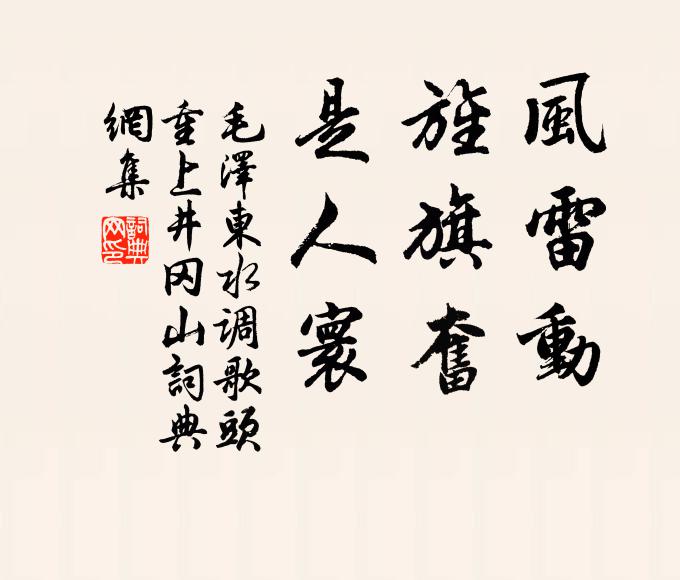 風雷動
旌旗奮
是人寰
毛澤東水调歌頭
重上井冈山詞典
網集
詞典
网印